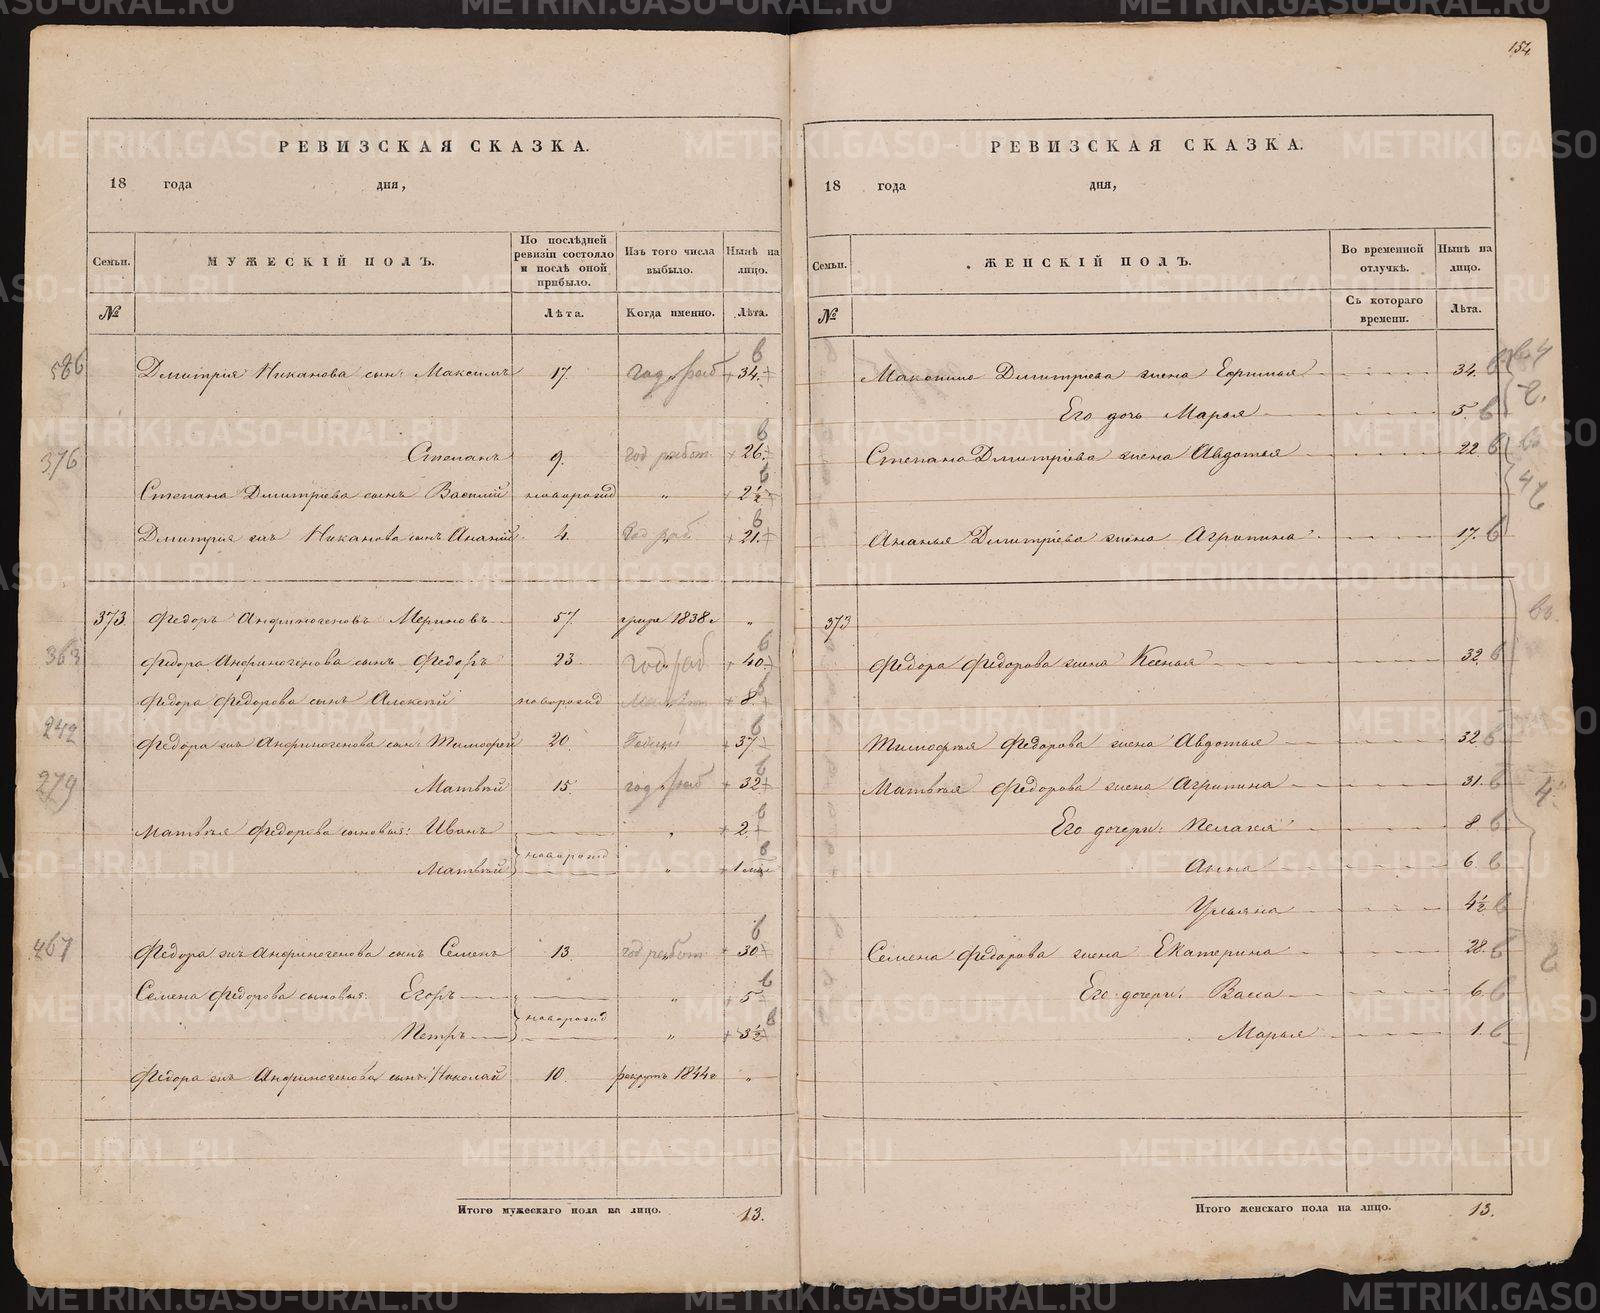 154
РЕВИЗСКАЯ СКАЗКА.
18 года дня,
Семьи. МУЖЕСКІЙ ПОЛЪ. По послѣдней ревизіи состояло и послѣ оной прибыло. Изъ того числа выбыло. Нынѣ на лицо.
№ Лѣта. Когда именно. Лѣта.
586 Дмитрія Никанова сынъ Максимъ 17. год. раб 34.
376 Степанъ 9. год работ. 26.
Степана Дмитріева сынъ Василій новорожд „ 2½
Дмитрія Никанова сынъ Ананій 4. год раб 21.
373. Федоръ Анфиногеновъ Мериновъ 57. 1838 „
363 Федора Анфиногенова сынъ Федоръ 23. год раб 40.
Федора Федорова сынъ Алексей новорожд 8.
242 Федора Анфиногенова сынъ Тимофей 20. 37
279 Матвѣй 15. год. раб 32
Матвѣя Федорова сыновья: Иванъ „ 2.
новорожд
Матвѣй „ 1
467 Федора Анфиногенова сынъ Семенъ 13. год работ 30
Семена Федорова сыновья: Егоръ „ 5
новорожд
Петръ „ 3½
Федора Анфиногенова сынъ Николай 10. рекрутъ 1844 „
Итого мужескаго пола на лицо. 13.
РЕВИЗСКАЯ СКАЗКА.
18 года дня,
Семьи. ЖЕНСКІЙ ПОЛЪ. Во временной отлучкѣ. Нынѣ на лицо.
№ Съ котораго времени. Лѣта.
Максима Дмитріева жена Ефимья 34.
Его дочь Марья 5.
Степана Дмитріева жена Авдотья 22
Ананья Дмитріева жена Агрипина 17.
373
Федора Федорова жена Ксенья 32.
Тимофея Федорова жена Авдотья 32
Матвѣя Федорова жена Агрипина 31.
Его дочери: Пелагея 8
Анна 6.
Ульяна 4½
Семена Федорова жена Екатерина 28.
Его дочери: Васса 6.
Марья 1.
Итого женскаго пола на лицо. 13.
METRIKI.GASO-URAL.RU